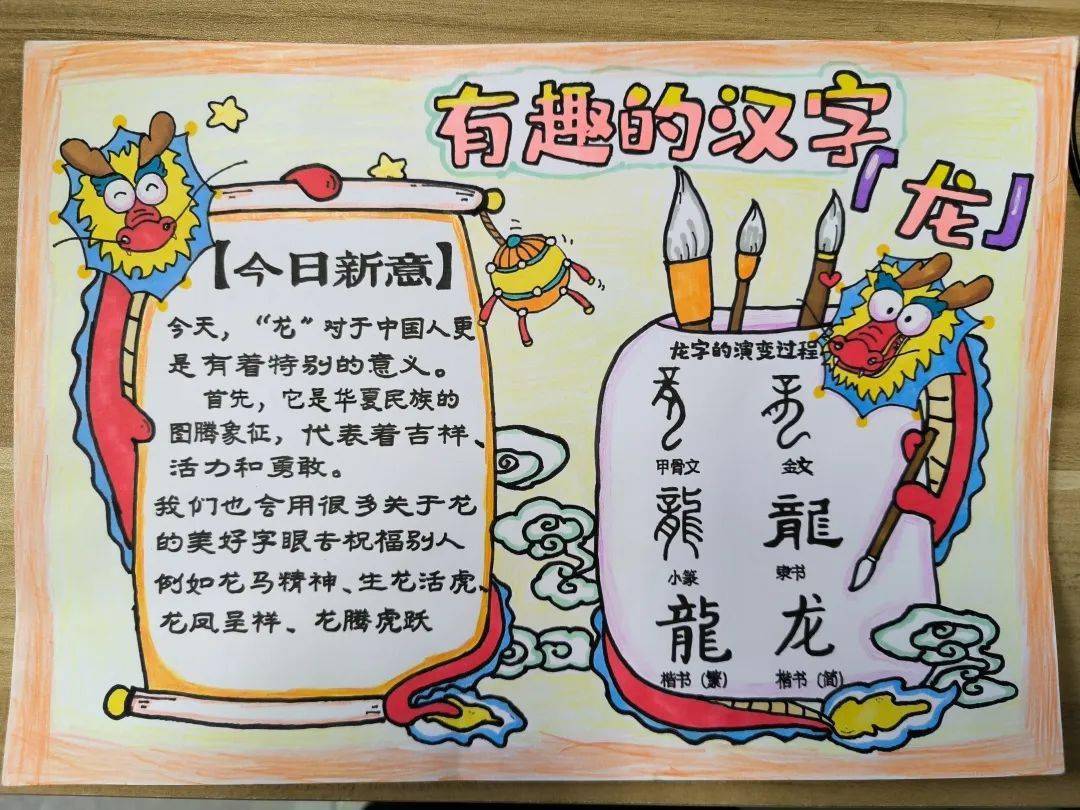 有趣的汉字
「龙」
【今日新意】
今天，“龙”对于中国人更
是有着特别的意义。
首先，它是华夏民族的
图腾象征，代表着吉祥、
活力和勇敢。
我们也会用很多关于龙
的美好字眼去祝福别人
例如龙马精神、生龙活虎、
龙凤呈祥、龙腾虎跃
龙字的演变过程
甲骨文 金文
龍 龍
小篆 隶书
龍 龙
楷书（繁） 楷书（简）